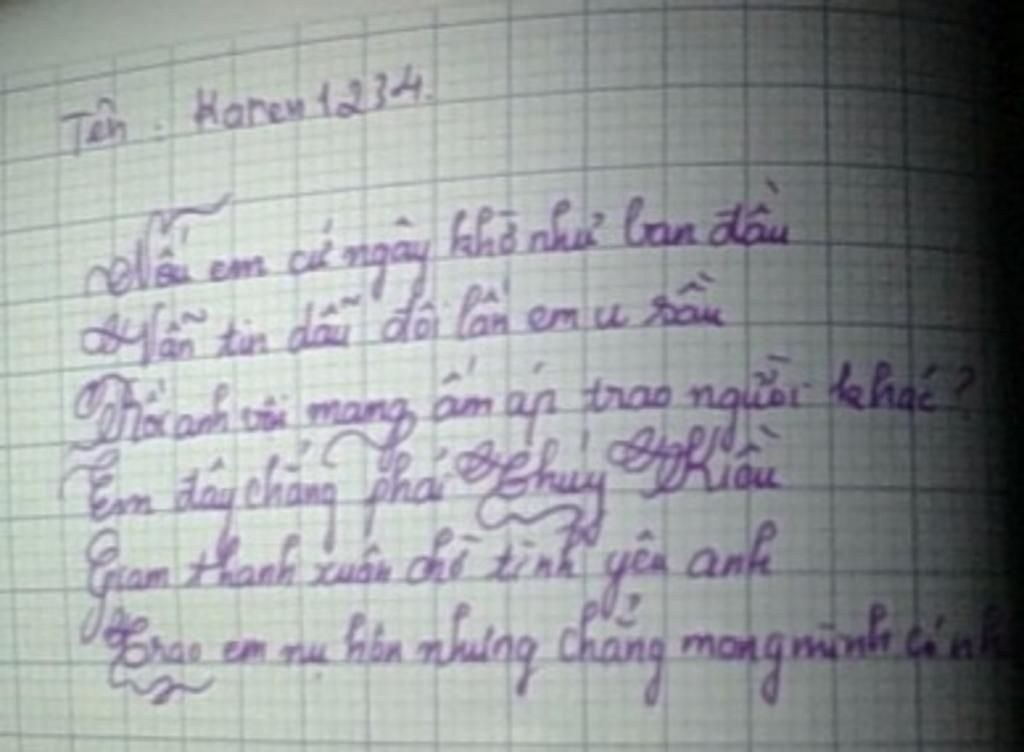 Tên : Karen1234.
Nếu em cứ ngây khờ như ban đầu
Vẫn tin dẫu đôi lần em u sầu
Thôi anh vội mang ấm áp trao người khác?
Em đây chẳng phải Thúy Kiều
Giam thanh xuân chờ tình yêu anh
Trao em nụ hôn nhưng chẳng mong mình có nh